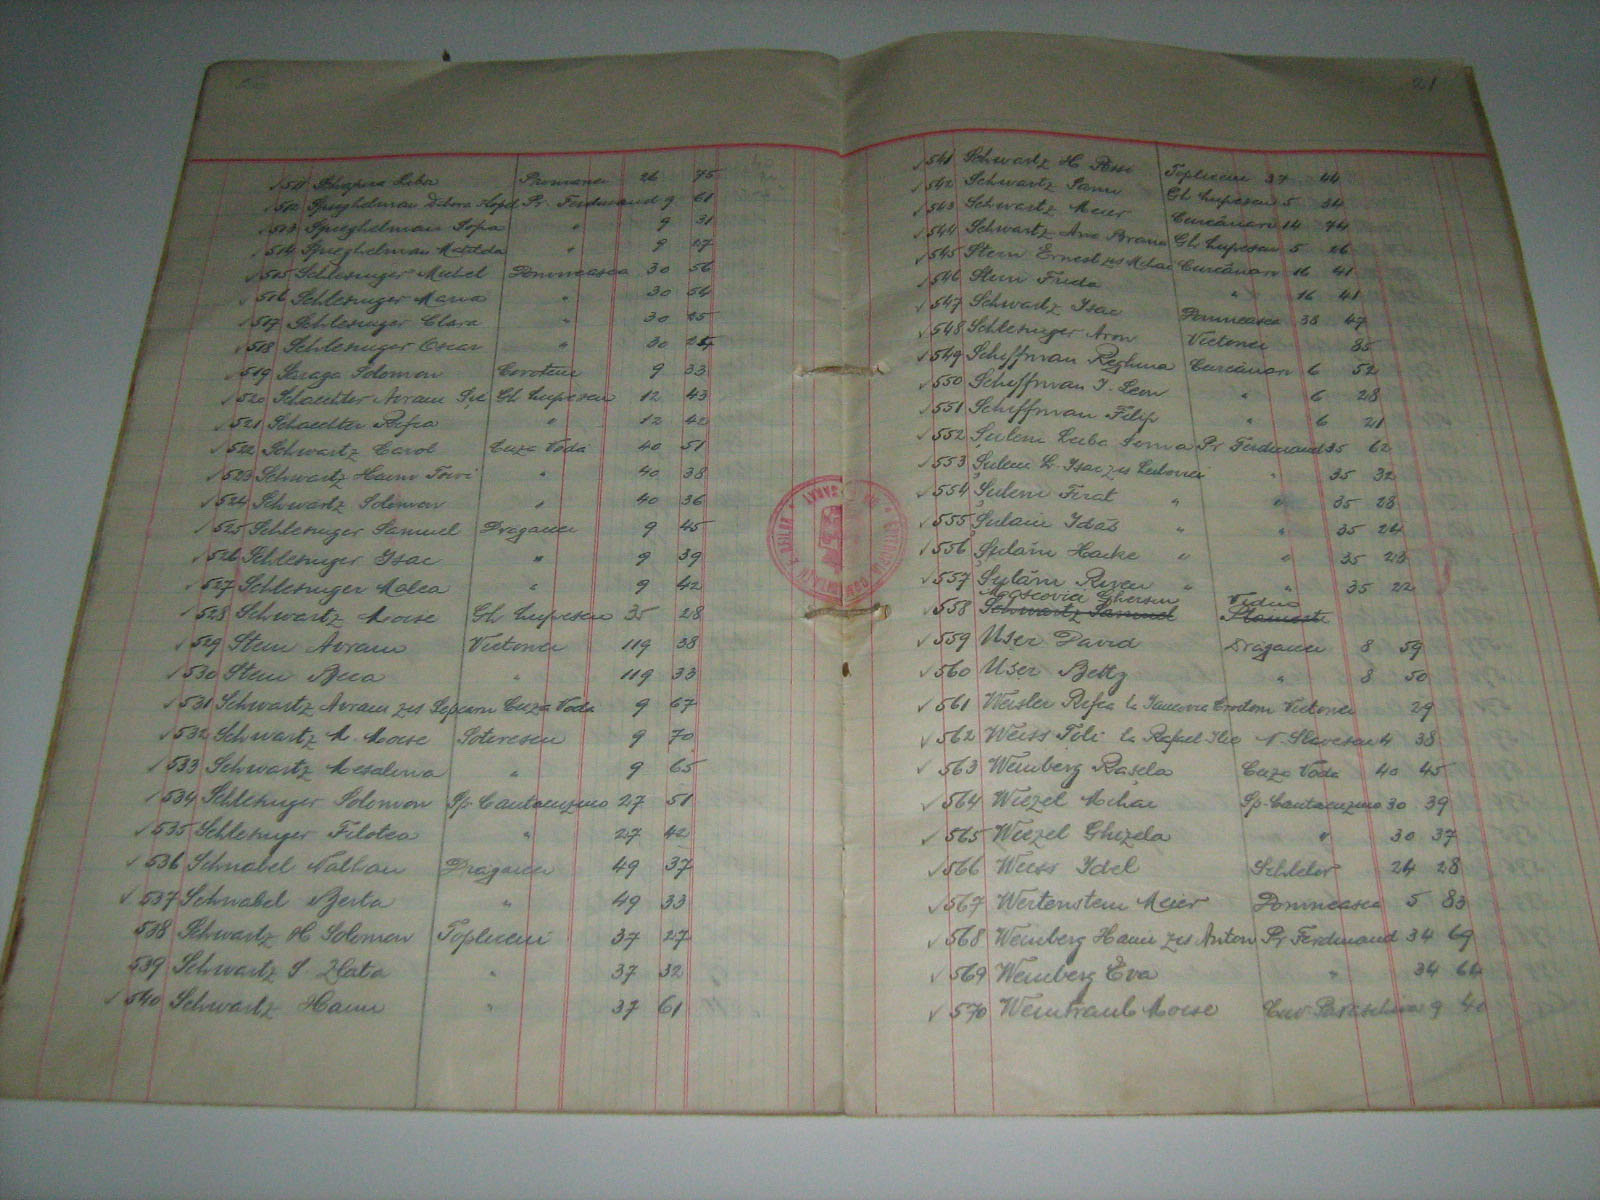 21
511 Shapira Liba 26 75
512 Spieghelman Debora Pr. Ferdinand 9 61
513 Spieghelman Sofia " 9 31
514 Spieghelman Matilda " 9 27
515 Schlesinger Michel Domneasca 30 56
516 Schlesinger Maria " 30 54
517 Schlesinger Clara " 30 25
518 Schlesinger Oscar " 30
519 Saraga Solomon 9 33
520 Schaechter Avram Gh Lupescu 12 43
521 Schaechter Rifca " 12 42
522 Schwartz Carol Cuza Vodă 40 51
523 Schwartz Haim " 40 38
524 Schwartz Solomon " 40 36
525 Schlesinger Samuel Drăganei 9 45
526 Schlesinger Isac " 9 39
527 Schlesinger Malca " 9 42
528 Schwartz Moise Gh Lupescu 35 28
529 Stein Avram Victoriei 119 38
530 Stein " 119 33
531 Schwartz Avram zis Cuza Voda 9 67
532 Schwartz M. Moise 9 70
533 Schwartz Mesalina " 9 65
534 Schlesinger Solomon Sp. Cantacuzino 27 51
535 Schlesinger Filotea " 27 42
536 Schnabel Nathan Drăganei 49 37
537 Schnabel Berta " 49 33
538 Schwartz H Solomon Topliceni 37 27
539 Schwartz S Zlata " 37 32
540 Schwartz Haim " 37 61
541 Schwartz H Topliceni 37 44
542 Schwartz Gh Lupescu 5 34
543 Schwartz Meier 14 44
544 Schwartz Ana Gh Lupescu 5 26
545 Stern Ernest zis Mihai 16 41
546 Stern Frida " 16 41
547 Schwartz Isac Domneasca 38 47
548 Schlesinger Aron Victoriei 85
549 Schiffman Reghina 6 52
550 Schiffman I. Leon " 6 28
551 Schiffman Filip " 6 21
552 Șulem Liuba Pr Ferdinand 35 62
553 Șulem L. Isac zis " 35 32
554 Șulem " " 35 28
555 Șulaim " " 35 24
556 Șulaim " " 35 23
557 Șulăm Riven " " 35 22
Moscovici Gherson
558 Schwartz Samuel
559 Ușer David Drăganei 8 59
560 Ușer Betty " 8 50
561 Weisler Rifca la Victoriei 29
562 Weiss Toli la Rafael Ilie 4 38
563 Weinberg Rașela Cuza Voda 40 45
564 Wiezel Mihai Sp. Cantacuzino 30 39
565 Wiezel Ghizela " 30 37
566 Weiss Idel 24 28
567 Wertenstein Meier Domneasca 5 83
568 Weinberg Haim zis Anton Pr Ferdinand 34 69
569 Weinberg Eva " 34 64
570 Weintraub Moise Cuv. Paraschiva 9 40